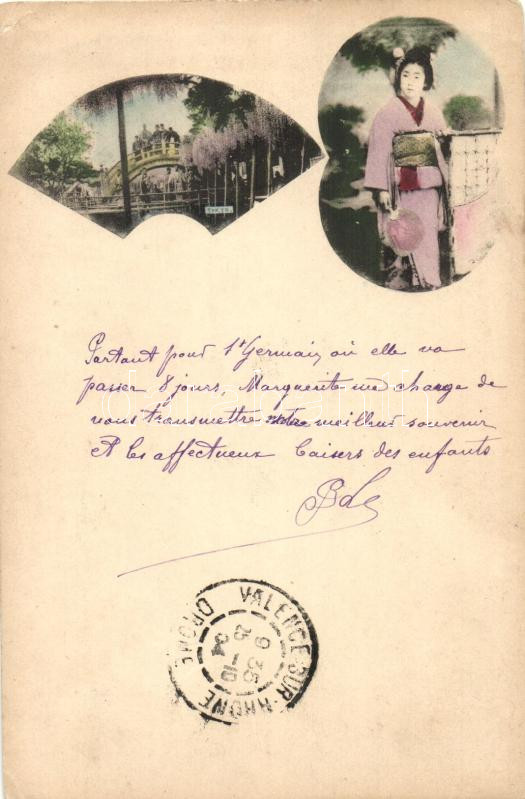 TOKYO.
Partant pour St Germain, où elle va
passer 8 jours, Marguerite me charge de
vous transmettre notre meilleur souvenir
et les affectueux baisers des enfants
VALENCE-SUR-RHONE DROME
9 35